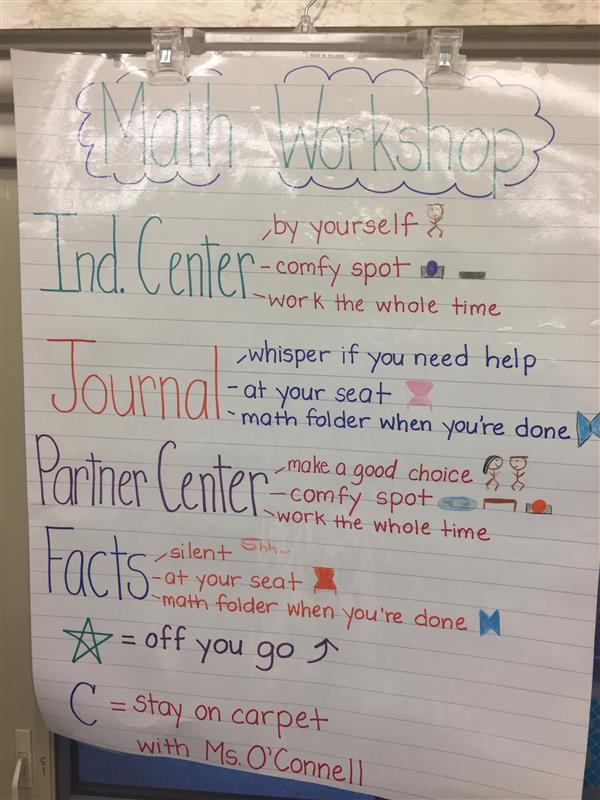 Math Workshop
Ind. Center
by yourself
-comfy spot
work the whole time
Journal
whisper if you need help
-at your seat
math folder when you're done
Partner Center
make a good choice
-comfy spot
work the whole time
Facts
silent Shh...
-at your seat
math folder when you're done
= off you go
C = stay on carpet
with Ms. O'Connell